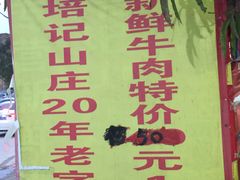 新鲜牛肉特价50元
培记山庄20年老